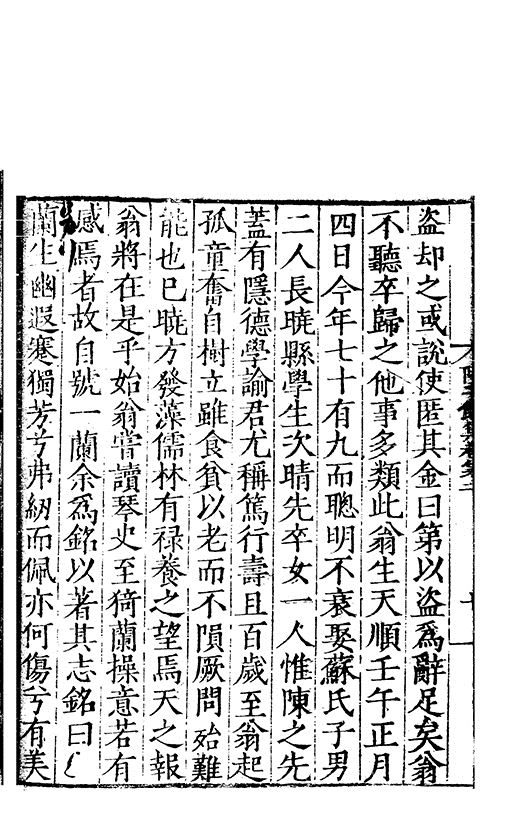 盗却之或說使匿其金曰第以盗爲辭足矣翁
不聽卒歸之他事多類此翁生天順壬午正月
四日今年七十有九而聰明不衰娶蘇氏子男
二人長曉縣學生次晴先卒女一人惟陳之先
蓋有隱德學諭君尤稱篤行壽且百歲至翁起
孤童奮自樹立雖食貧以老而不隕厥問殆難
能也已曉方發藻儒林有禄養之望焉天之報
翁將在是乎始翁甞讀琴史至猗蘭操意若有
感焉者故自號一蘭余爲銘以著其志銘曰
蘭生幽遐蹇獨芳兮弗紉而佩亦何傷兮有美